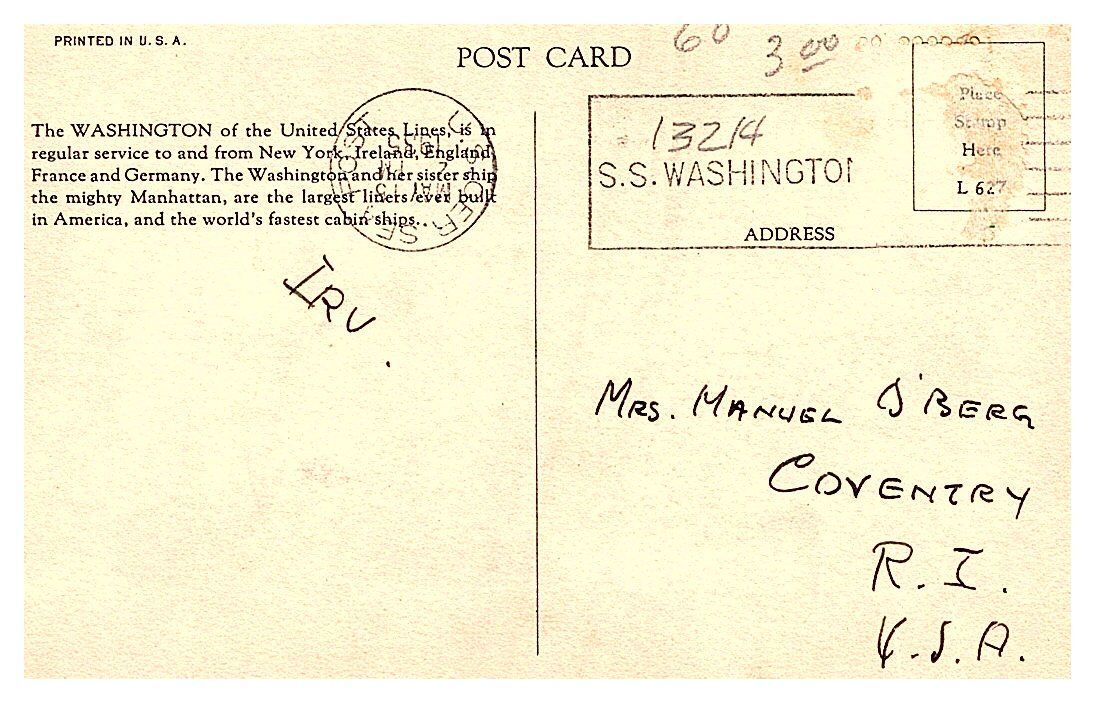 PRINTED IN U. S. A.
POST CARD
60
3 00
The WASHINGTON of the United States Lines, is in
regular service to and from New York, Ireland, England,
France and Germany. The Washington and her sister ship
the mighty Manhattan, are the largest liners ever built
in America, and the world's fastest cabin ships..
MAY 13
13214
S.S. WASHINGTON
ADDRESS
Place
Stamp
Here
L 627
IRV.
MRS. MANUEL O'BERG
COVENTRY
R. I.
U.S.A.